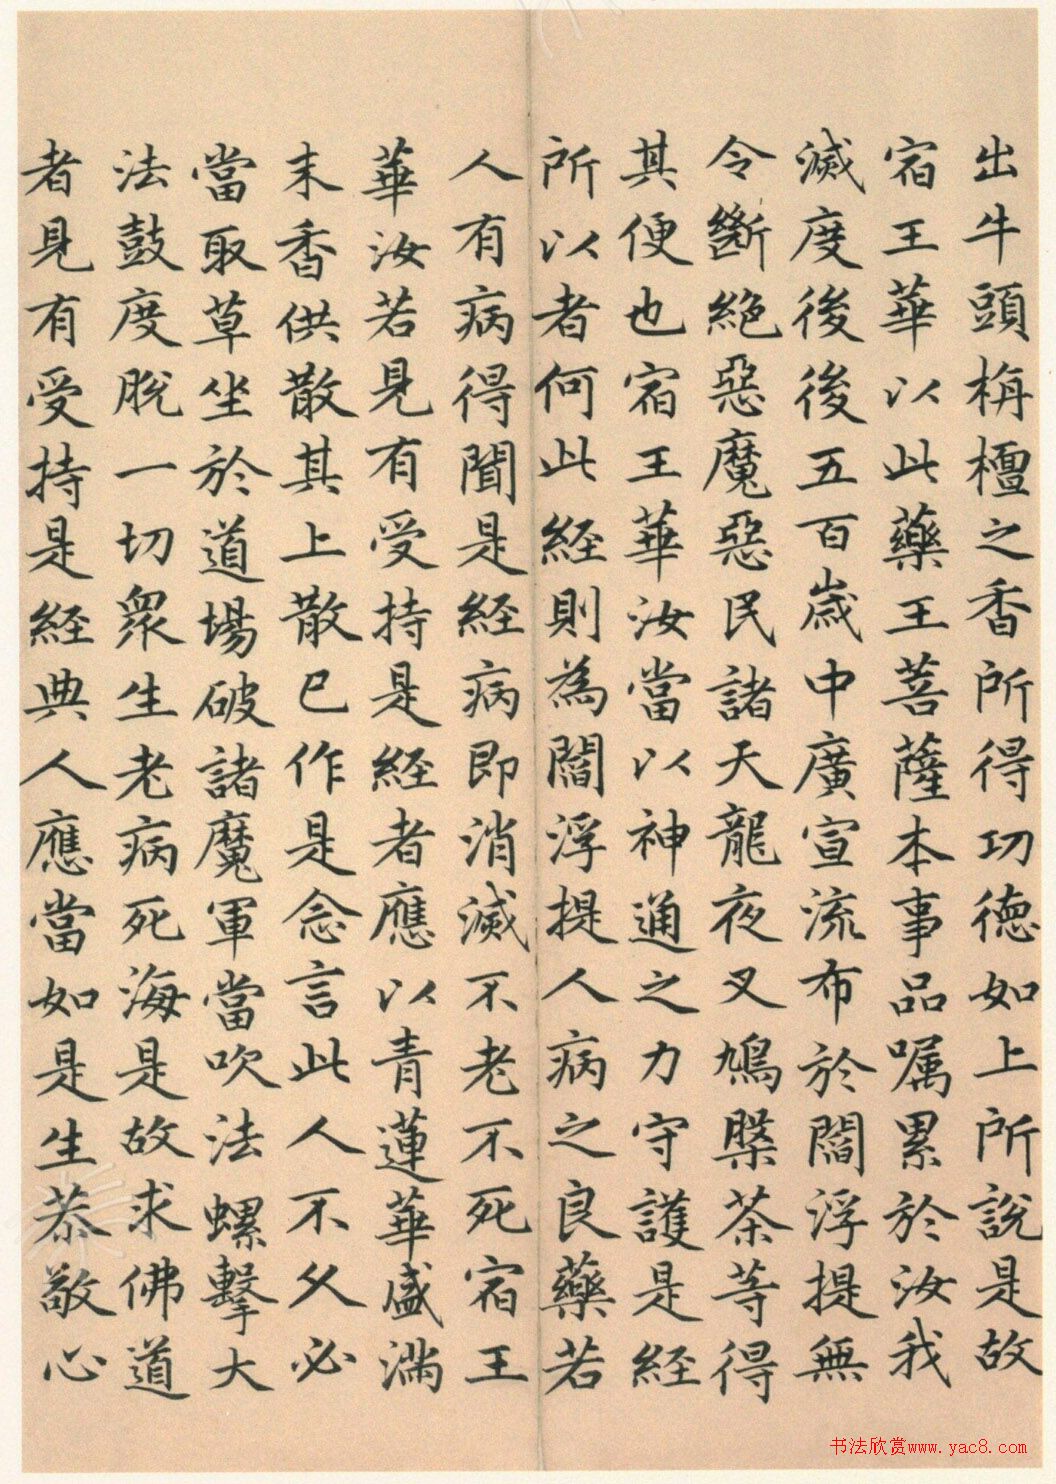 出牛頭栴檀之香所得功德如上所說是故
宿王華以此藥王菩薩本事品囑累於汝我
滅度後後五百歲中廣宣流布於閻浮提無
令斷絕惡魔惡民諸天龍夜叉鳩槃荼等得
其便也宿王華汝當以神通之力守護是經
所以者何此經則為閻浮提人病之良藥若
人有病得聞是經病即消滅不老不死宿王
華汝若見有受持是經者應以青蓮華盛滿
末香供散其上散已作是念言此人不久必
當取草坐於道場破諸魔軍當吹法螺擊大
法鼓度脫一切眾生老病死海是故求佛道
者見有受持是經典人應當如是生恭敬心
书法欣赏www.yac8.com